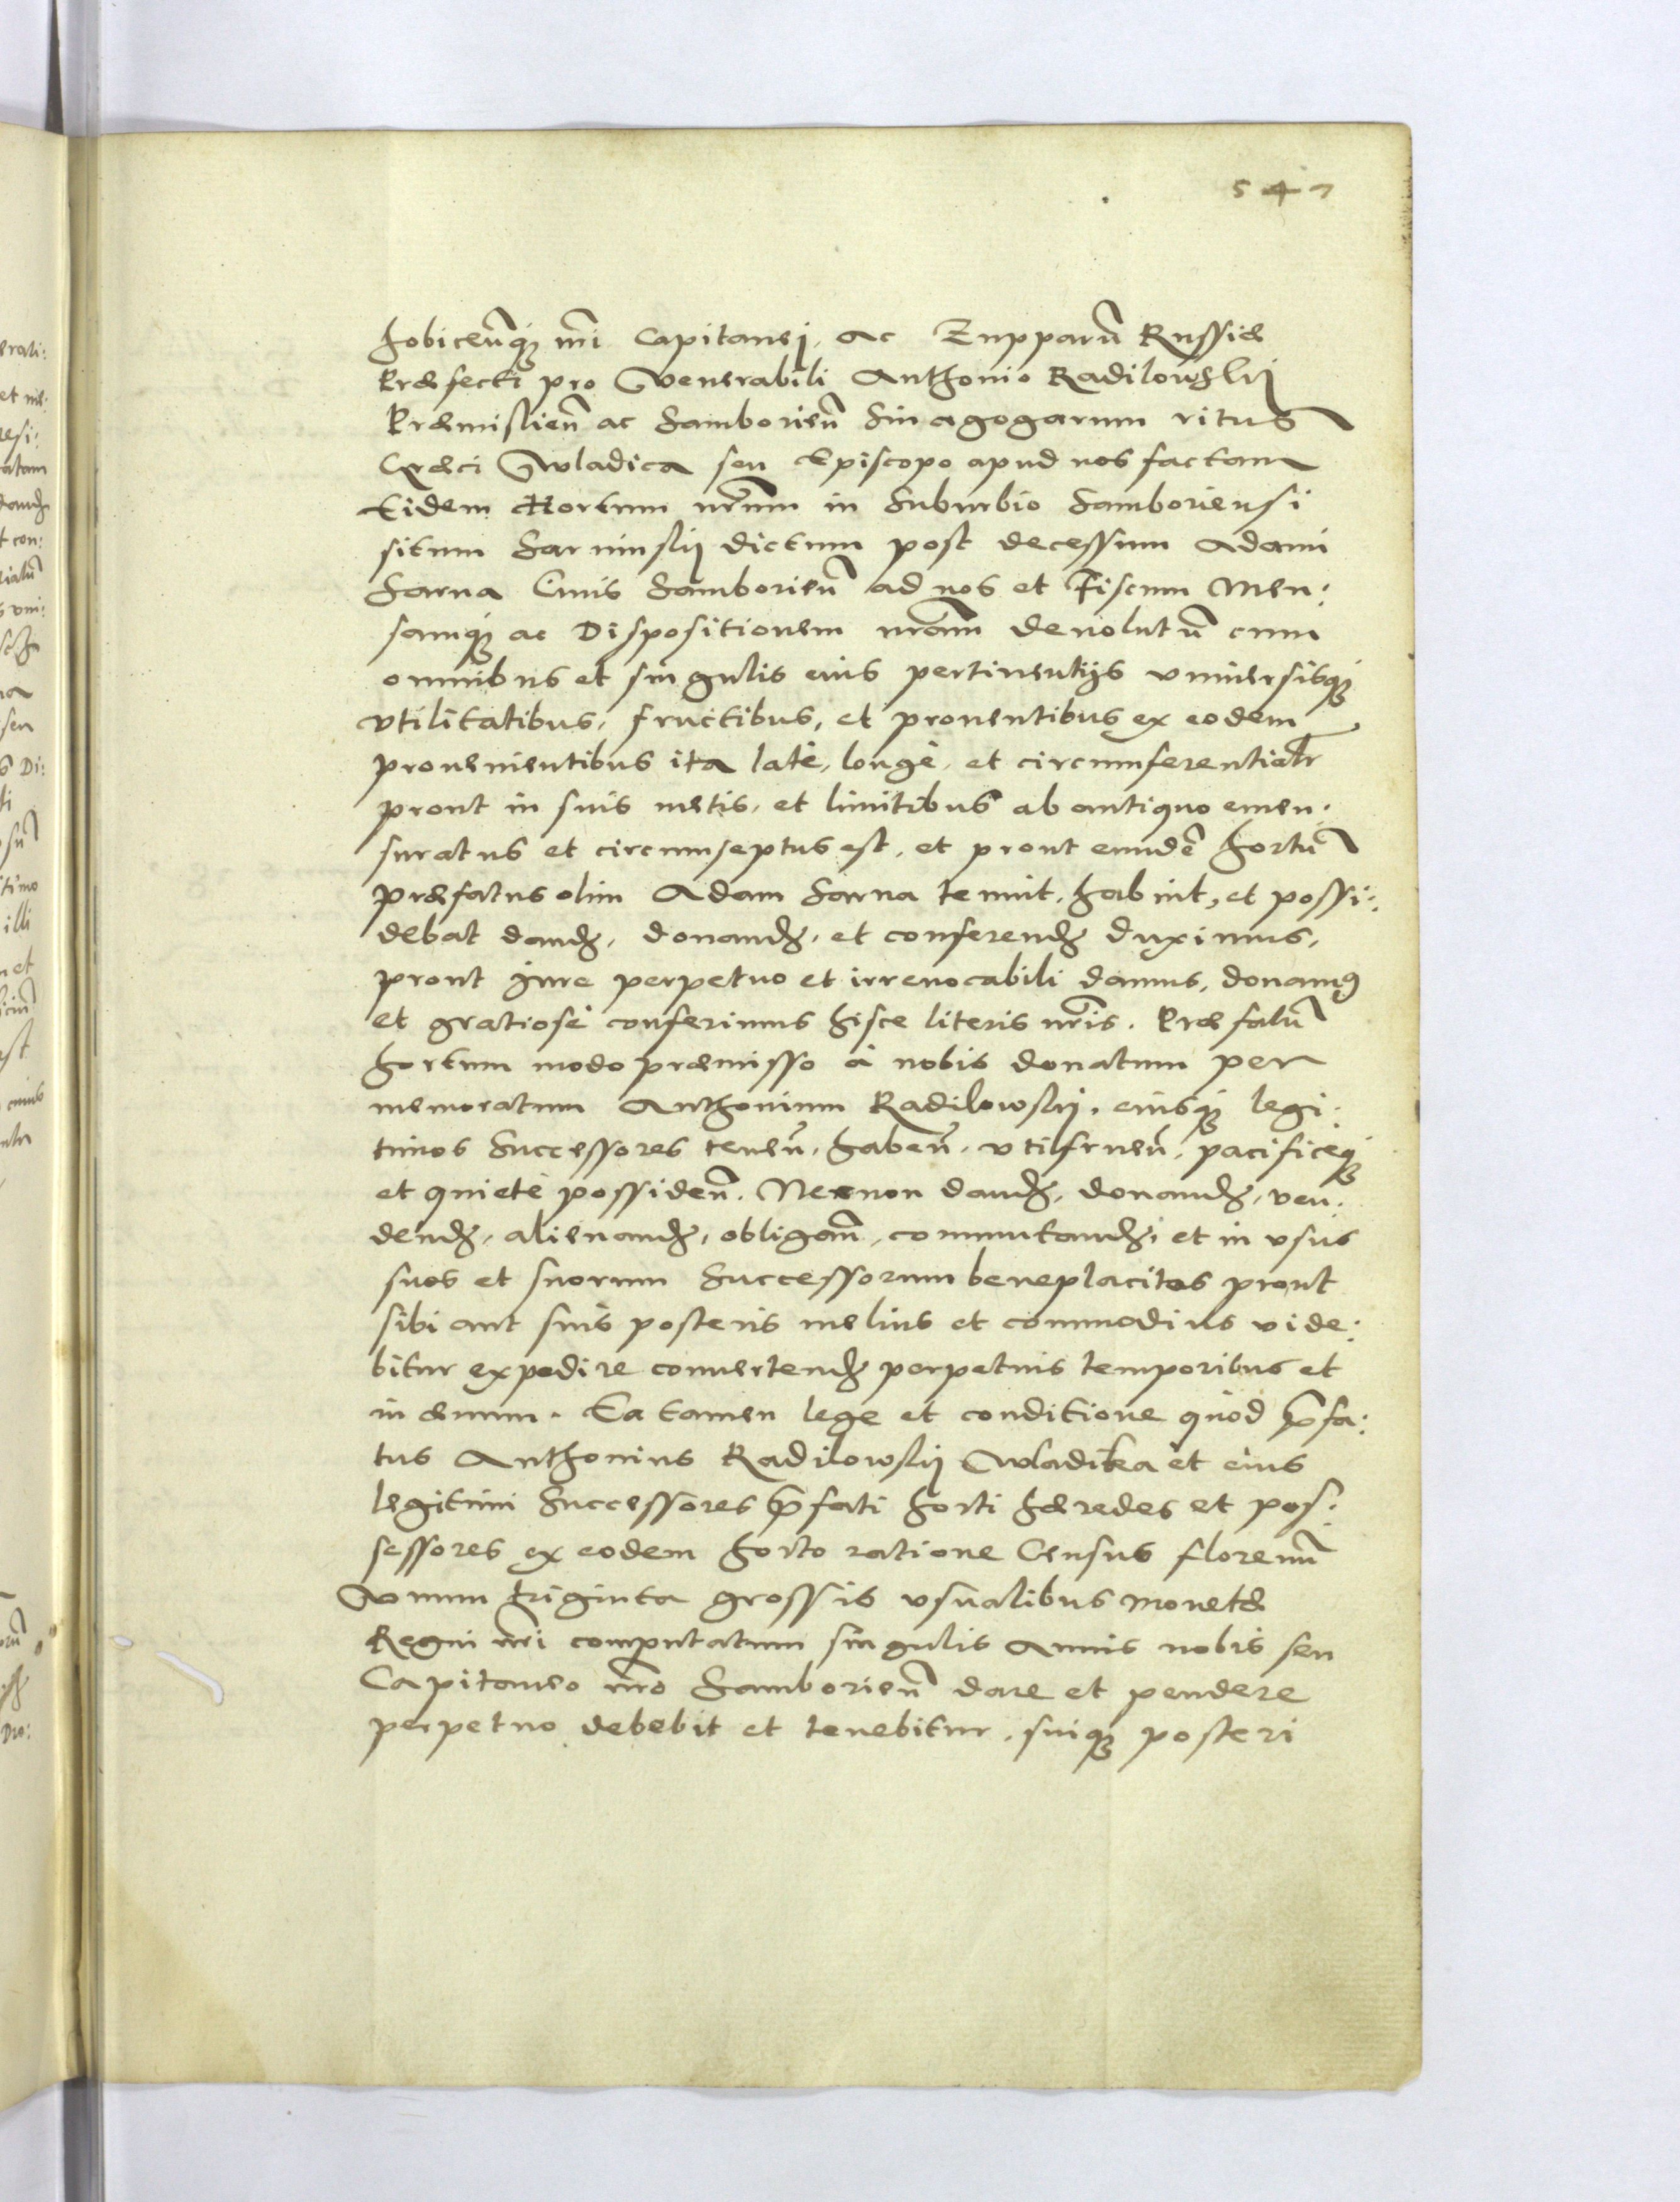 547
hobicen̄q́ꝫ nr̄i Capitanei, ac Zupparū Russiæ
Præfecti pro Venerabili Anthonio Radilowskÿ
Præmislien̄ ac Samborien̄ Sinagogarum ritus
Græci Wladica seu Episcopo apud nos factam
Eidem Hortum nr̄um in Suburbio Samboriensi
situm Sarninskÿ dictum post decessum Adami
Sarna Ciuis Samborien̄ ad nos et Fiscum Men:
samqꝫ ac Dispositionem nr̄am deuolutū cum
omnibus et singulis eius pertinentijs vniuersisqꝫ
vtilitatibus, fructibus, et prouentibus ex eodem
prouenientibus ita latè, longè, et circumferentialr̄
prout in suis metis, et limitibus ab antiquo emen:
suratus et circumseptus est, et prout eundē hortū
præfatus olim Adam Sarna tenuit, habuit, et possi:
debat dandꝫ, donandꝫ, et conferendꝫ duximus,
prout iure perpetuo et irreuocabili damus, donamꝰ
et gratiosè conferimus hisce literis nr̄is. Præfatū
hortum modo præmisso à nobis donatum per
memoratum Anthonium Radilowskÿ, eiusqꝫ legi:
timos Successores tenen̄, haben̄, vtilfruen̄, pacificeqꝫ
et quietè possiden̄. Necnon dandꝫ, donandꝫ, ven:
dendꝫ, alienandꝫ, obligan̄, commutandꝫ, et in vsus
suos et suorum Successorum beneplacitos prout
sibi aut suis posteris melius et commodius vide:
bitur expedire conuertendꝫ perpetuis temporibus et
in æuum. Ea tamen lege et conditione quòd p̄fa:
tus Anthonius Radilowskÿ Wladika et eius
legitimi Successores p̄fati horti hæredes et pos:
sessores ex eodem horto ratione Census florenū
Vnum triginta grossis vsualibus monetæ
Regni nr̄i computatum singulis Annis nobis seu
Capitaneo nr̄o Samborien̄ dare et pendere
perpetuo debebit et tenebitur, suiqꝫ posteri